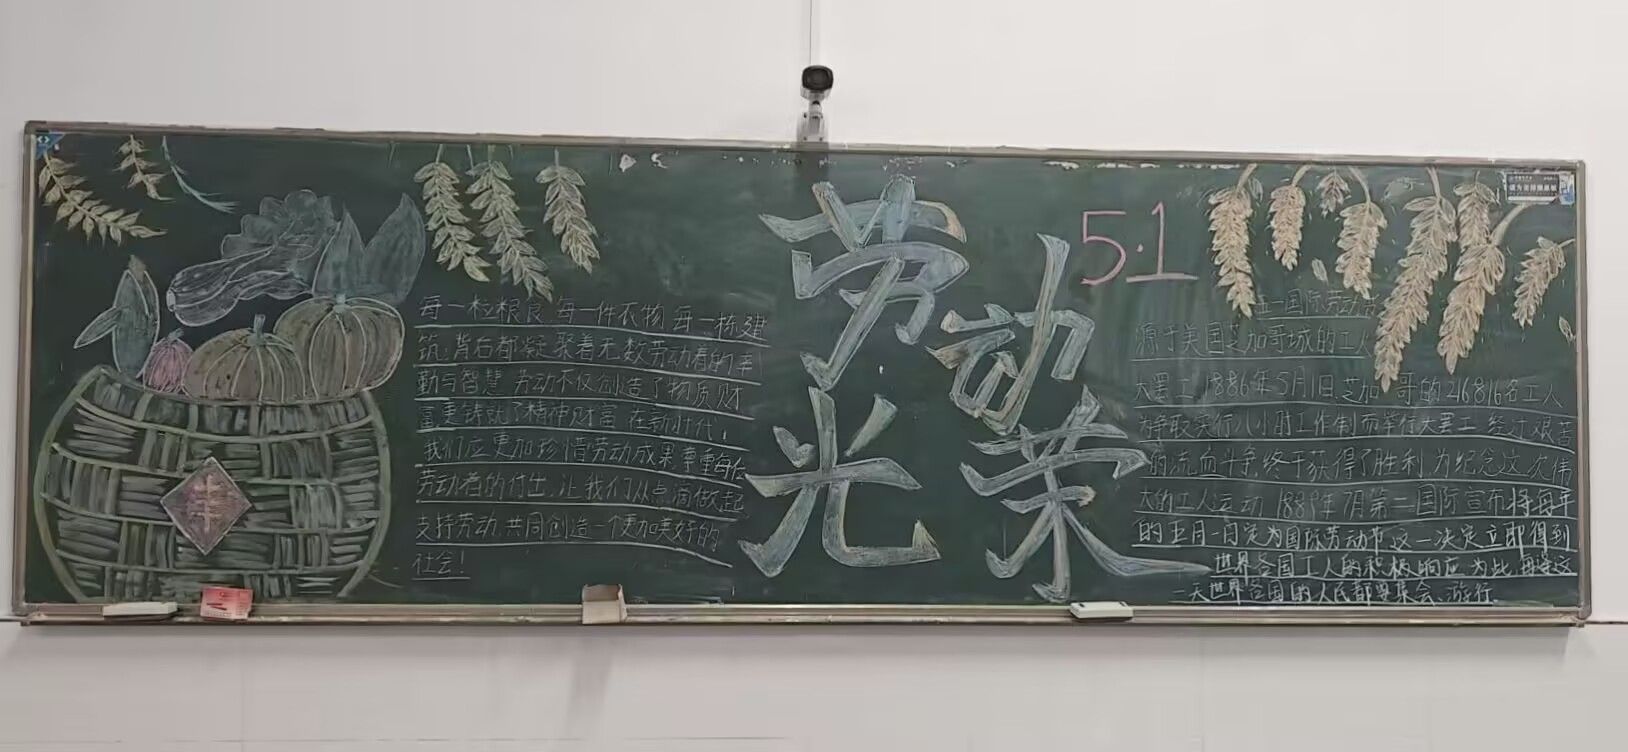 每一粒粮食，每一件衣物，每一栋建
筑，背后都凝聚着无数劳动者的辛
勤与智慧，劳动不仅创造了物质财
富更铸就了精神财富，在新时代，
我们应更加珍惜劳动成果，尊重每位
劳动者的付出，让我们从点滴做起
支持劳动，共同创造一个更加美好的
社会！
丰
劳动
光荣
5·1
五一国际劳动节
源于美国芝加哥城的工人
大罢工，1886年5月1日，芝加哥的216816名工人
为争取实行八小时工作制而举行大罢工，经过艰苦
的流血斗争，终于获得了胜利，为纪念这次伟
大的工人运动，1889年7月第二国际宣布将每年
的五月一日定为国际劳动节，这一决定立即得到
世界各国工人的积极响应，为此，每逢这
一天世界各国的人民都要集会、游行